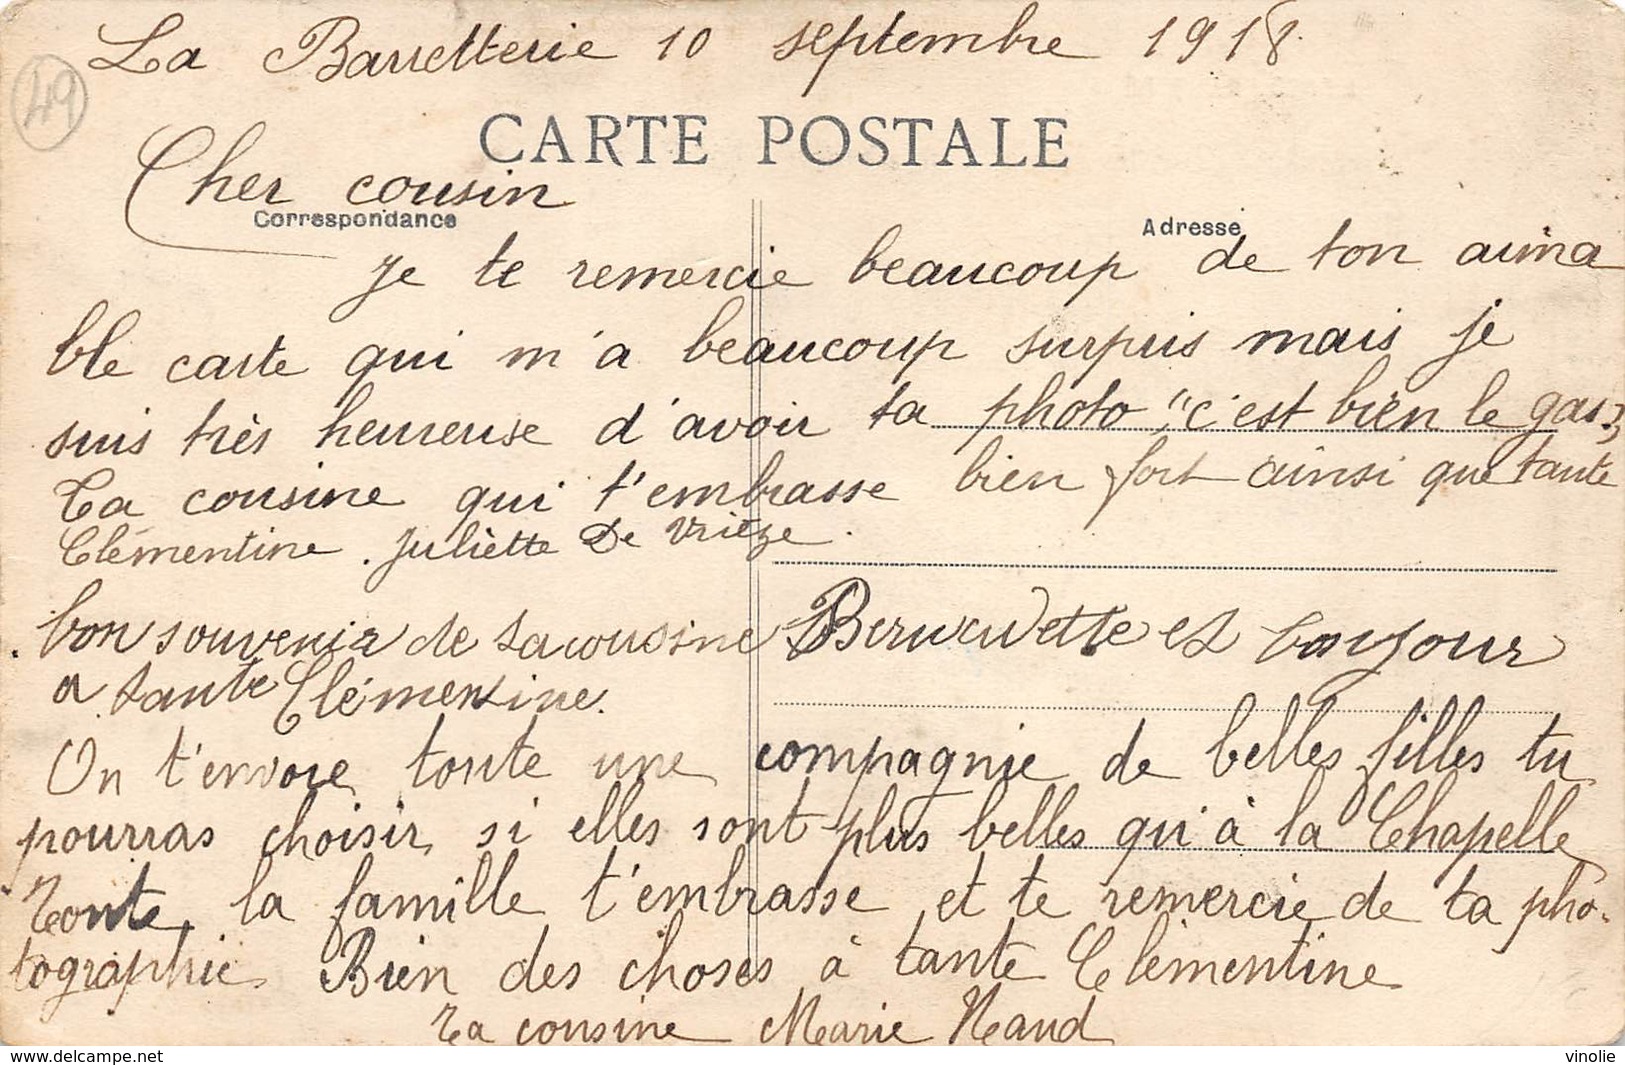 La Barretterie 10 septembre 1918
49
CARTE POSTALE
Cher cousin
Correspondance
Adresse
Je te remercie beaucoup de ton aima
ble carte qui m'a beaucoup surpris mais je
suis très heureuse d'avoir ta photo, "c'est bien le gas?"
Ta cousine qui t'embrasse bien fort ainsi que tante
Clémentine. Juliètte De Vrièze.
bon souvenir de ta cousine et bonjour
a tante Clémentine.
On t'envoie toute une compagnie de belles filles tu
pourras choisir si elles sont plus belles qu'à la Chapelle
Toute la famille t'embrasse et te remercie de ta pho-
tographie Bien des choses à tante Clémentine
Ta cousine Marie Naud
www.delcampe.net
vinolie